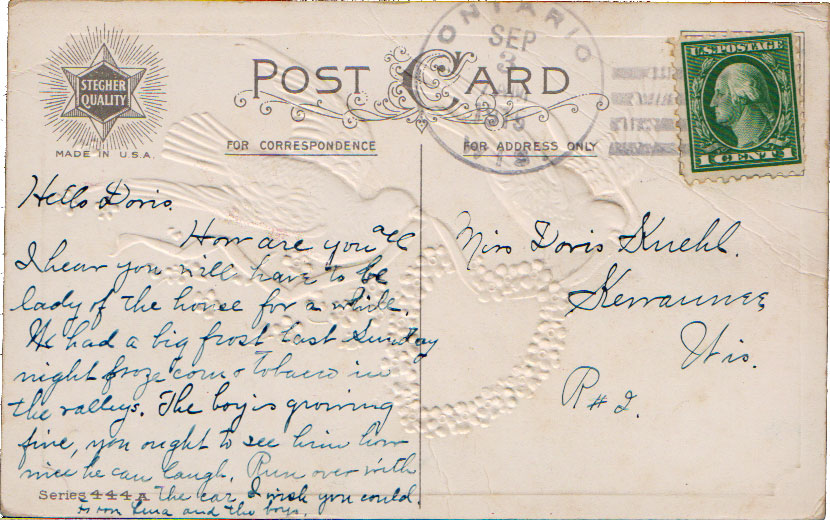 STEGHER
QUALITY
MADE IN U.S.A.
POST CARD
FOR CORRESPONDENCE
FOR ADDRESS ONLY
ONTARIO
SEP
3
1915
WIS
U.S. POSTAGE
1 CENT 1
Hello Doris.
How are you all
I hear you will have to be
lady of the house for a while.
We had a big frost last Sunday
night froze corn & tobacco in
the valleys. The boy is growing
fine, you ought to see him how
nice he can laugh. Run over with
the car I wish you could.
From Lena and the boys.
Series 444 A
Miss Doris Kuehl.
Kewaunee
Wis.
R # 2.